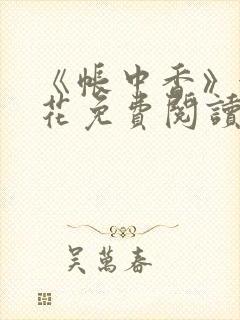 《帳中香》
花免費閱讀
吳萬春